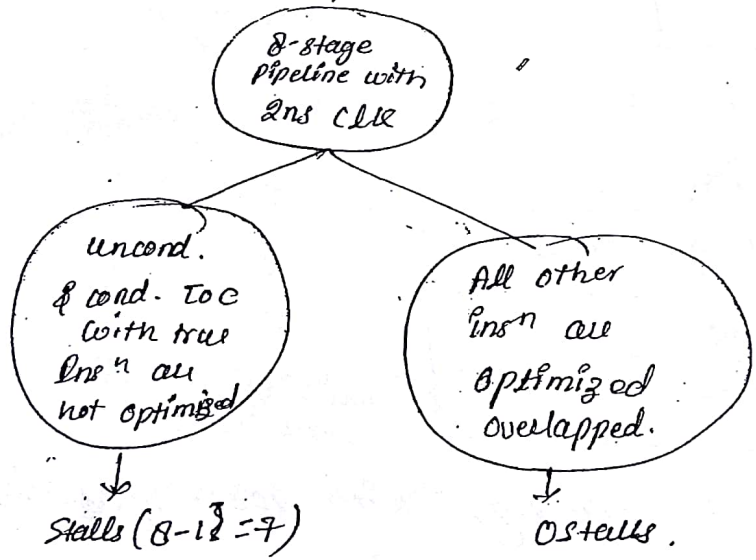 8-stage
Pipeline with
2ns clk
uncond.
& cond. TOC
with true
Insⁿ are
not optimized
Stalls (8-1) = 7
All other
insⁿ are
optimized
overlapped.
0 stalls.